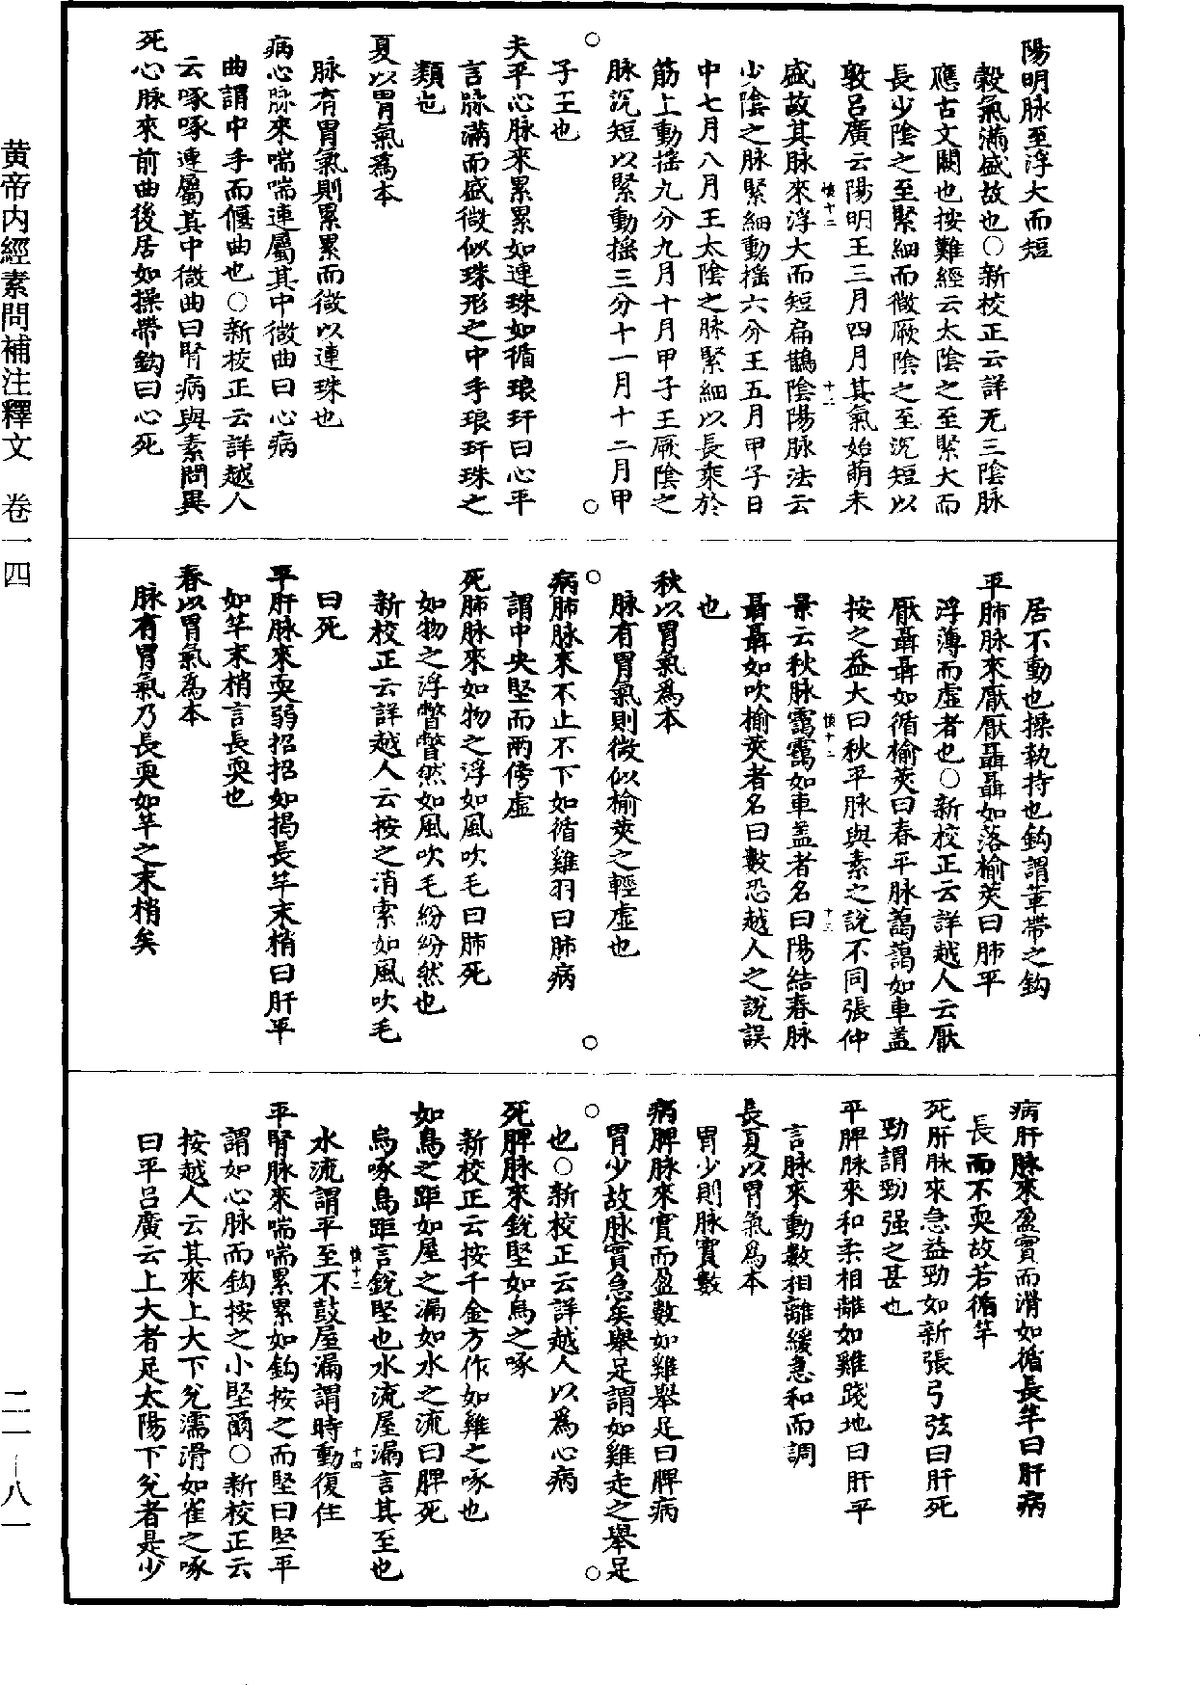 黄帝内經素問補注釋文　卷一四
二一—八一
陽明脉至浮大而短
穀氣滿盛故也○新校正云詳无三陰脉
應古文闕也按難經云太陰之至緊大而
長少陰之至緊細而微厥陰之至沉短以
敦吕廣云陽明王三月四月其氣始萌未
盛故其脉來浮大而短扁鵲陰陽脉法云
少陰之脉緊細動摇六分王五月甲子日
中七月八月王太陰之脉緊細以長乘於
筋上動摇九分九月十月甲子王厥陰之
脉沉短以緊動摇三分十一月十二月甲
子王也
夫平心脉來累累如連珠如循琅玕曰心平
言脉滿而盛微似珠形之中手琅玕珠之
類也
夏以胃氣爲本
脉有胃氣則累累而微以連珠也
病心脉來喘喘連屬其中微曲曰心病
曲謂中手而偃曲也○新校正云詳越人
云啄啄連屬其中微曲曰腎病與素問異
死心脉來前曲後居如操帶鈎曰心死
居不動也操執持也鈎謂革帶之鈎
平肺脉來厭厭聶聶如落榆莢曰肺平
浮薄而虚者也○新校正云詳越人云厭
厭聶聶如循榆莢曰春平脉藹藹如車盖
按之益大曰秋平脉與素之説不同張仲
景云秋脉靄靄如車盖者名曰陽結春脉
聶聶如吹榆莢者名曰數恐越人之説誤
也
秋以胃氣爲本
脉有胃氣則微似榆莢之輕虚也
病肺脉來不止不下如循雞羽曰肺病
謂中央堅而兩傍虚
死肺脉來如物之浮如風吹毛曰肺死
如物之浮瞥瞥然如風吹毛紛紛然也
新校正云詳越人云按之消索如風吹毛
曰死
平肝脉來耎弱招招如揭長竿末梢曰肝平
如竿末梢言長耎也
春以胃氣爲本
脉有胃氣乃長耎如竿之末梢矣
病肝脉來盈實而滑如循長竿曰肝病
長而不耎故若循竿
死肝脉來急益勁如新張弓弦曰肝死
勁謂勁强之甚也
平脾脉來和柔相離如雞踐地曰肝平
言脉來動數相離緩急和而調
長夏以胃氣爲本
胃少則脉實數
病脾脉來實而盈數如雞舉足曰脾病
胃少故脉實急矣舉足謂如雞走之舉足
也○新校正云詳越人以爲心病
死脾脉來鋭堅如烏之啄
新校正云按千金方作如雞之啄也
如鳥之距如屋之漏如水之流曰脾死
烏啄鳥距言鋭堅也水流屋漏言其至也
水流謂平至不鼓屋漏謂時動復住
平腎脉來喘喘累累如鈎按之而堅曰腎平
謂如心脉而鈎按之小堅爾○新校正云
按越人云其來上大下兊濡滑如雀之啄
曰平吕廣云上大者足太陽下兊者是少